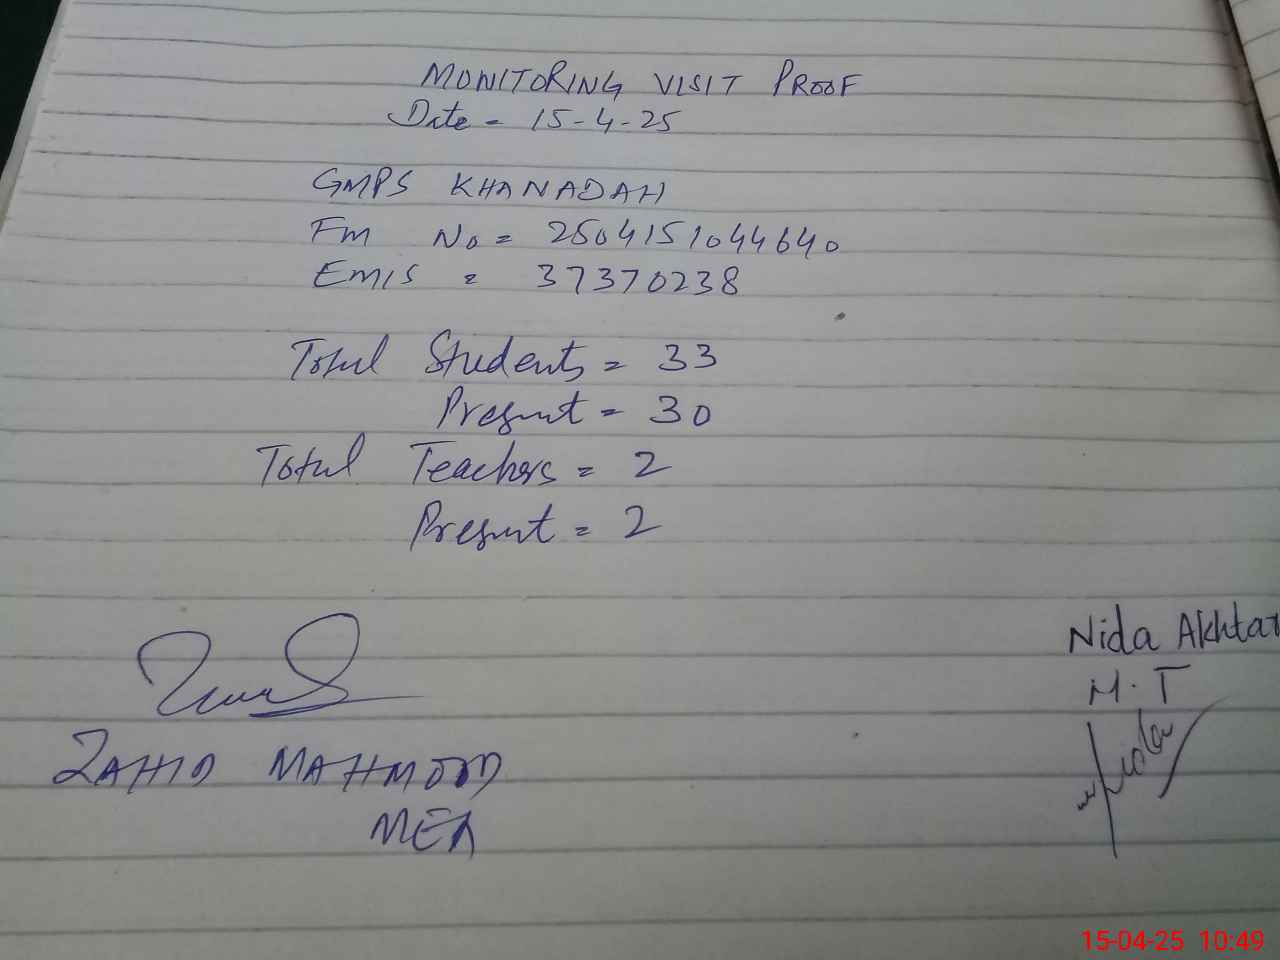 MONITORING VISIT PROOF
Date = 15-4-25
GMPS KHANADAH
Fm No = 2504151044640
EMIS = 37370238
Total Students = 33
Present = 30
Total Teachers = 2
Present = 2
Nida Akhtar
M.T
Nida
ZAHID MAHMOOD
MEA
15-04-25 10:49